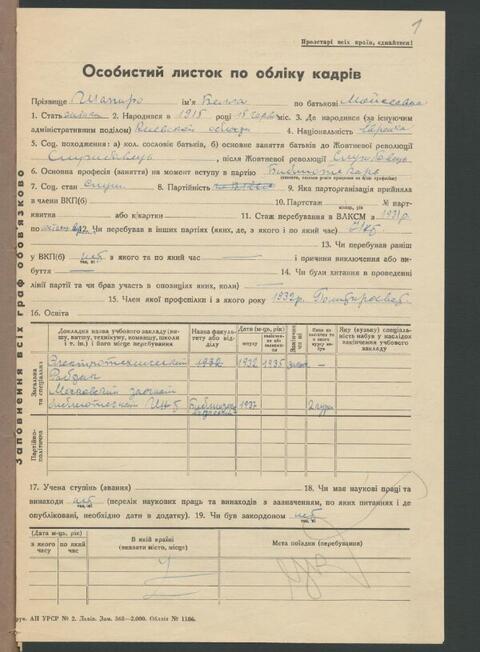 1
Пролетарі всіх країн, єднайтеся!
Особистий листок по обліку кадрів
Прізвище Шапиро ім'я Белла по батькові Мойсеевна
1. Стать 2. Народився в 1915 році 15 міс. 3. Де народився (за існуючим
адміністративним поділом) Киевской области 4. Національність еврейка
5. Соц. походження: а) кол. сословіє батьків, б) основне заняття батьків до Жовтневої революції
Служивець, після Жовтневої революції
6. Основна професія (заняття) на момент вступу в партію Библиотекарь
7. Соц. стан служ. 8. Партійність 9. Яка парторганізація прийняла
в члени ВКП(б) 10. Партстаж № парт-
місяць, рік
квитка або к/картки 11. Стаж перебування в ВЛКСМ з 1931 р.
по 12. Чи був в інших партіях (яких, де, з якого і по який час) 13. Чи перебував раніш
у ВКП(б) нет з якого та по який час і причини виключення або ви-
буття 14. Чи були хитання в проведенні
лінії партії та чи брав участь в опозиціях (яких, коли)
15. Член якої профспілки і з якого року 1932 р. Политпросвет
16. Освіта
Заповнення всіх граф обов'язково
Докладна назва учбового закладу (ви-
шу, втузу, технікуму, комвишу, школи
і т. ін.) і його місце перебування
Назва факуль-
тету або від-
ділу
Дата (м-ць, рік)
вступу
Закінчив чи ні
Яку (вузьку) спеціаль-
ність набув у наслідок
закінчення учбового
закладу
Загальна та спеціальна
Электротехнический 1932 1935
Рабфак
Московский заочный
библиотечный Ин-т 1937 2 курс
Партійно-політична
17. Учена ступінь (звання) 18. Чи має наукові праці та
винаходи нет (перелік наукових праць та винаходів з зазначенням, по яких питаннях і де
опубліковані, необхідно дати в додатку). 19. Чи був закордоном нет
Дата (м-ць, рік)
з якого часу
по який час
В якій країні
(вказати місто, місце)
Мета поїздки (перебування)
АП УРСР № 2. Льв. Зам. 568—2.000. Обліт № 1186.